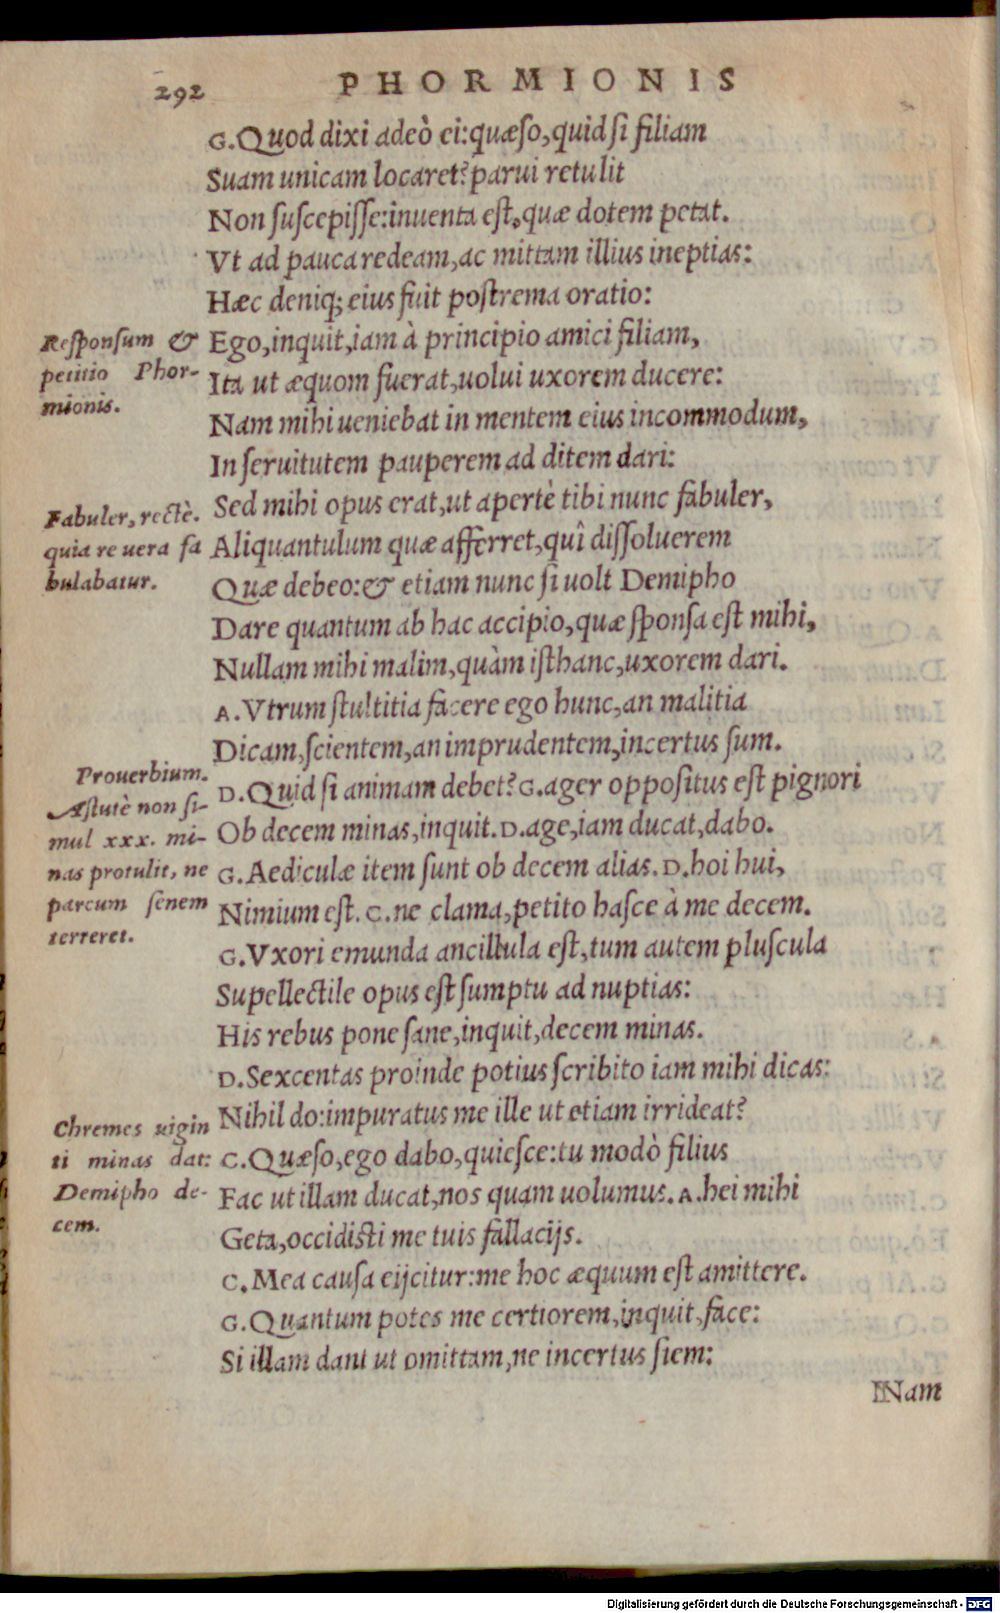 292 PHORMIONIS
G. Quod dixi adeò ei: quæso, quid si filiam
Suam unicam locaret? parui retulit
Non suscepisse: inuenta est, quæ dotem petat.
Vt ad pauca redeam, ac mittam illius ineptias:
Hæc deniq; eius fuit postrema oratio:
Responsum &
petitio Phor-
mionis.
Ego, inquit, iam à principio amici filiam,
Ita ut æquom fuerat, uolui uxorem ducere:
Nam mihi ueniebat in mentem eius incommodum,
In seruitutem pauperem ad ditem dari:
Fabuler, rectè.
quia re uera fa
bulabatur.
Sed mihi opus erat, ut apertè tibi nunc fabuler,
Aliquantulum quæ afferret, quî dissoluerem
Quæ debeo: & etiam nunc si uolt Demipho
Dare quantum ab hac accipio, quæ sponsa est mihi,
Nullam mihi malim, quàm isthanc, uxorem dari.
A. Vtrum stultitia facere ego hunc, an malitia
Dicam, scientem, an imprudentem, incertus sum.
Prouerbium.
Astutè non si-
mul xxx. mi-
nas protulit, ne
parcum senem
terreret.
D. Quid si animam debet? G. ager oppositus est pignori
Ob decem minas, inquit. D. age, iam ducat, dabo.
G. Aediculæ item sunt ob decem alias. D. hoi hui,
Nimium est. C. ne clama, petito hasce à me decem.
G. Vxori emunda ancillula est, tum autem pluscula
Supellectile opus est sumptu ad nuptias:
His rebus pone sane, inquit, decem minas.
D. Sexcentas proinde potius scribito iam mihi dicas:
Nihil do: impuratus me ille ut etiam irrideat?
Chremes uigin
ti minas dat:
Demipho de-
cem.
C. Quæso, ego dabo, quiesce: tu modò filius
Fac ut illam ducat, nos quam uolumus. A. hei mihi
Geta, occidisti me tuis fallacijs.
C. Mea causa eijcitur: me hoc æquum est amittere.
G. Quantum potes me certiorem, inquit, face:
Si illam dant ut omittam, ne incertus siem:
Nam
Digitalisierung gefördert durch die Deutsche Forschungsgemeinschaft - DFG